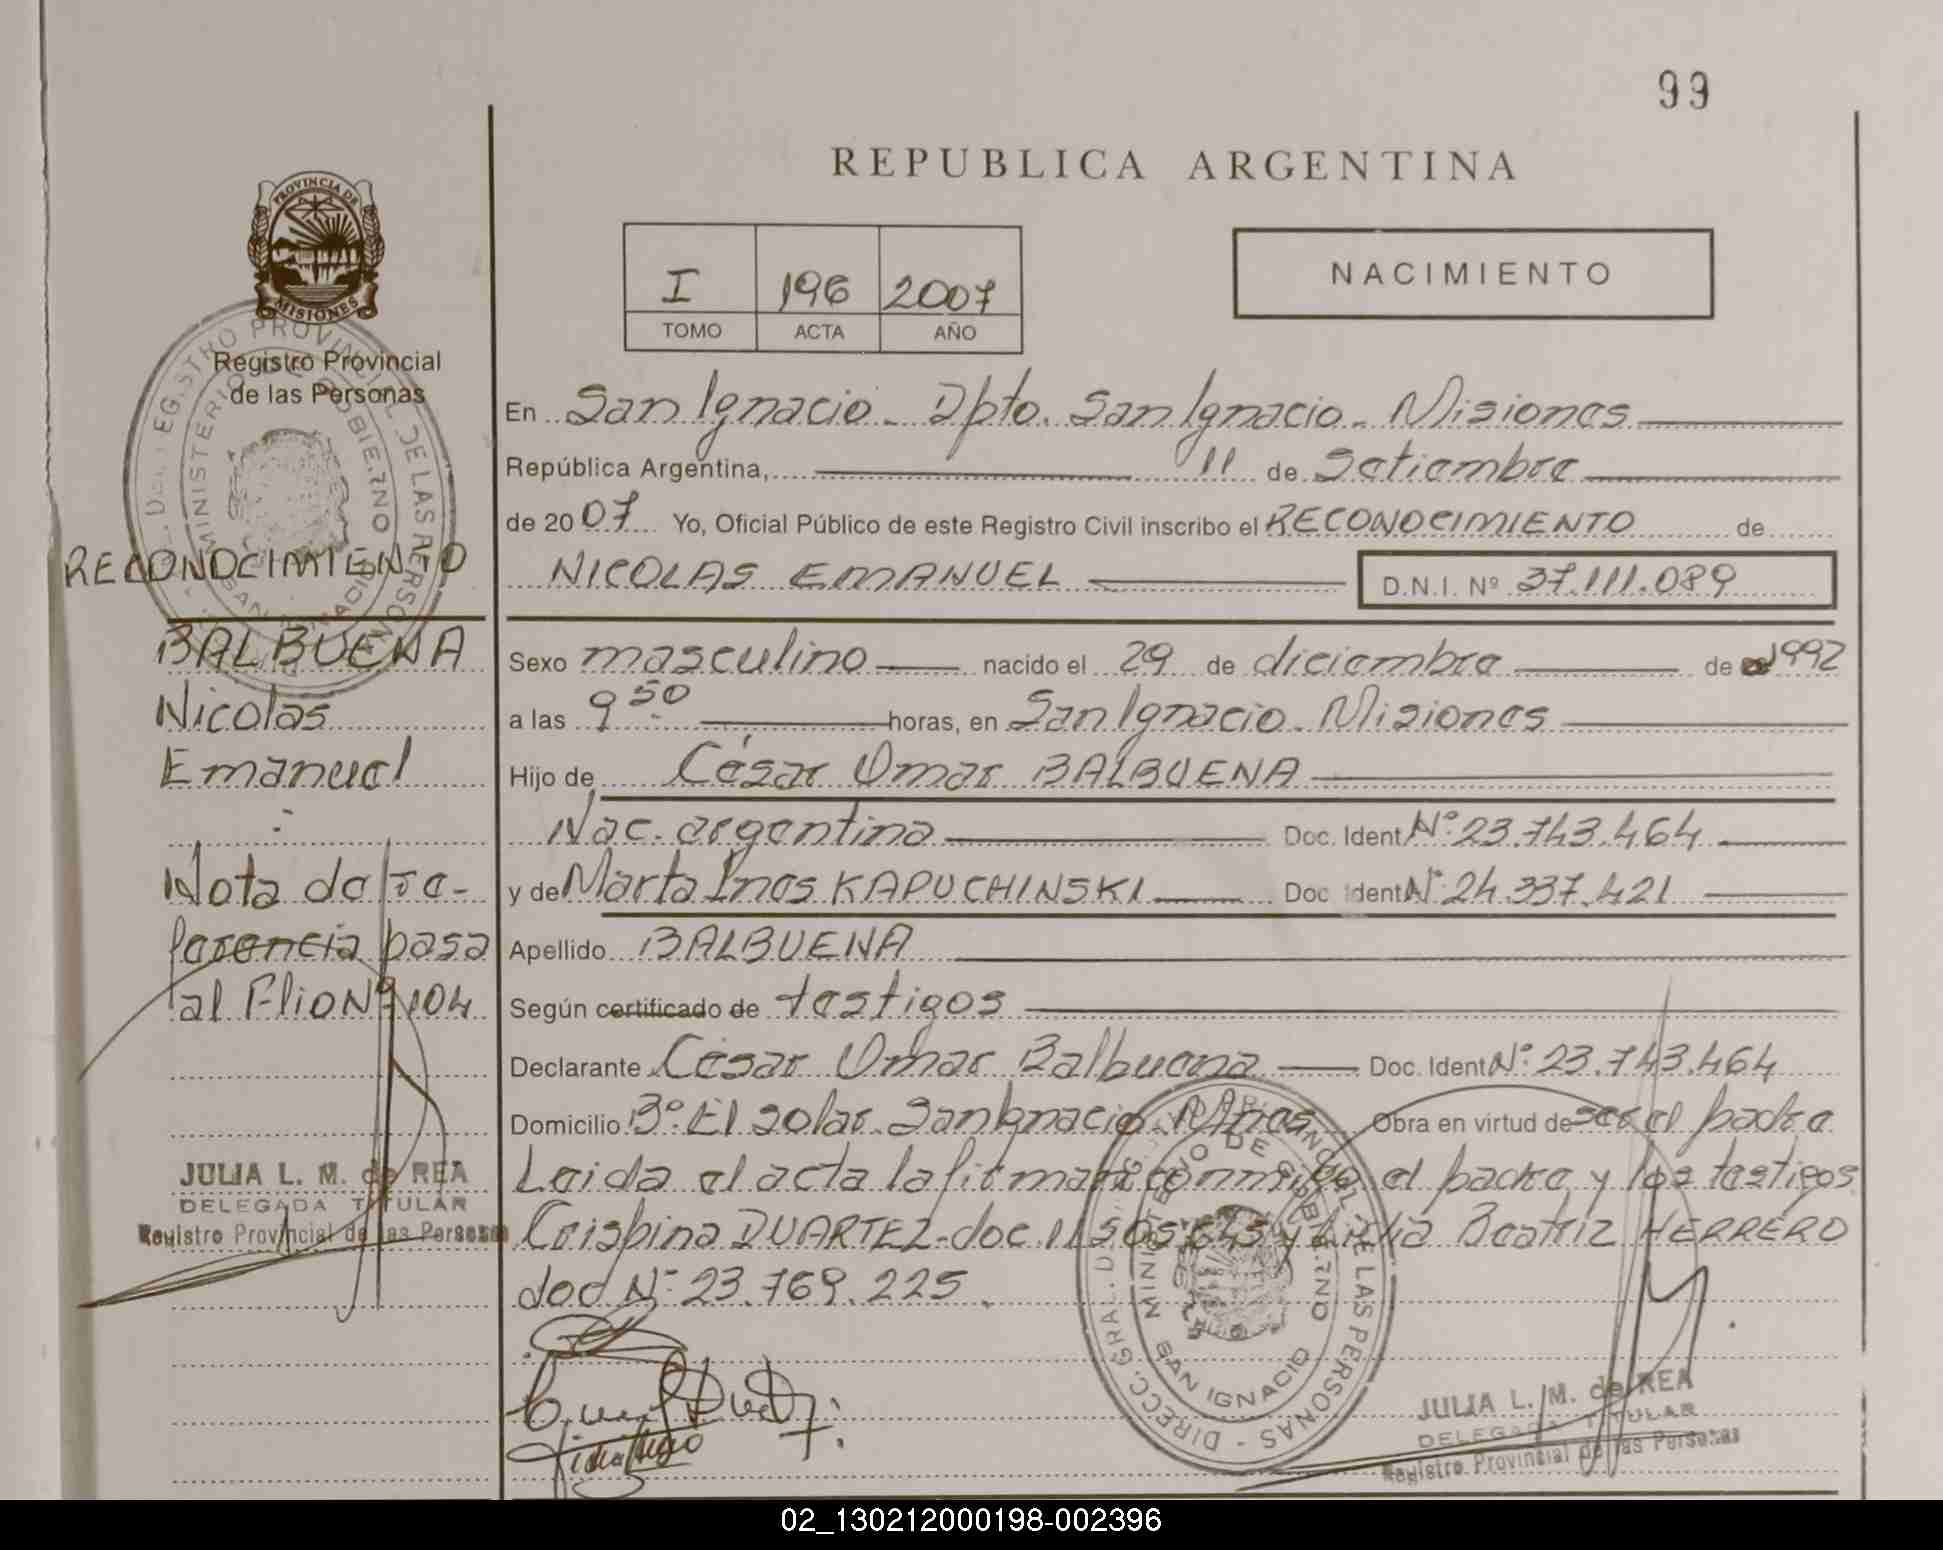 99
REPUBLICA ARGENTINA
PROVINCIA DE
MISIONES
Registro Provincial
de las Personas
I 196 2007
TOMO ACTA AÑO
NACIMIENTO
En San Ignacio - Dpto. San Ignacio - Misiones
República Argentina, 11 de Setiembre
de 20 07 Yo, Oficial Público de este Registro Civil inscribo el RECONOCIMIENTO de
NICOLAS EMANUEL D.N.I. Nº 37.111.089
RECONOCIMIENTO
BALBUENA
Nicolas
Emanuel
Nota de re-
ferencia pasa
al Flio Nº 104
JULIA L. M. de REA
DELEGADA TITULAR
Registro Provincial de las Personas
Sexo masculino nacido el 29 de diciembre de 1992
a las 9 50 horas, en San Ignacio - Misiones
Hijo de César Omar BALBUENA
Nac. argentina Doc. Ident Nº 23.743.464
y de Marta Ines KAPUCHINSKI Doc. Ident Nº 24.337.421
Apellido BALBUENA
Según certificado de testigos
Declarante César Omar Balbuena Doc. Ident Nº 23.743.464
Domicilio Bº El solar San Ignacio Mnes Obra en virtud de ser el padre
Leida el acta la firman conmigo el padre y los testigos
Crispina DUARTEZ - doc. y Lidia Beatriz HERRERO
doc Nº 23.769.225
DIRECC. GRAL. DEL REGISTRO PROVINCIAL DE LAS PERSONAS
MINISTERIO DE GOBIERNO
SAN IGNACIO
JULIA L. M. de REA
DELEGADA TITULAR
Registro Provincial de las Personas
02_130212000198-002396